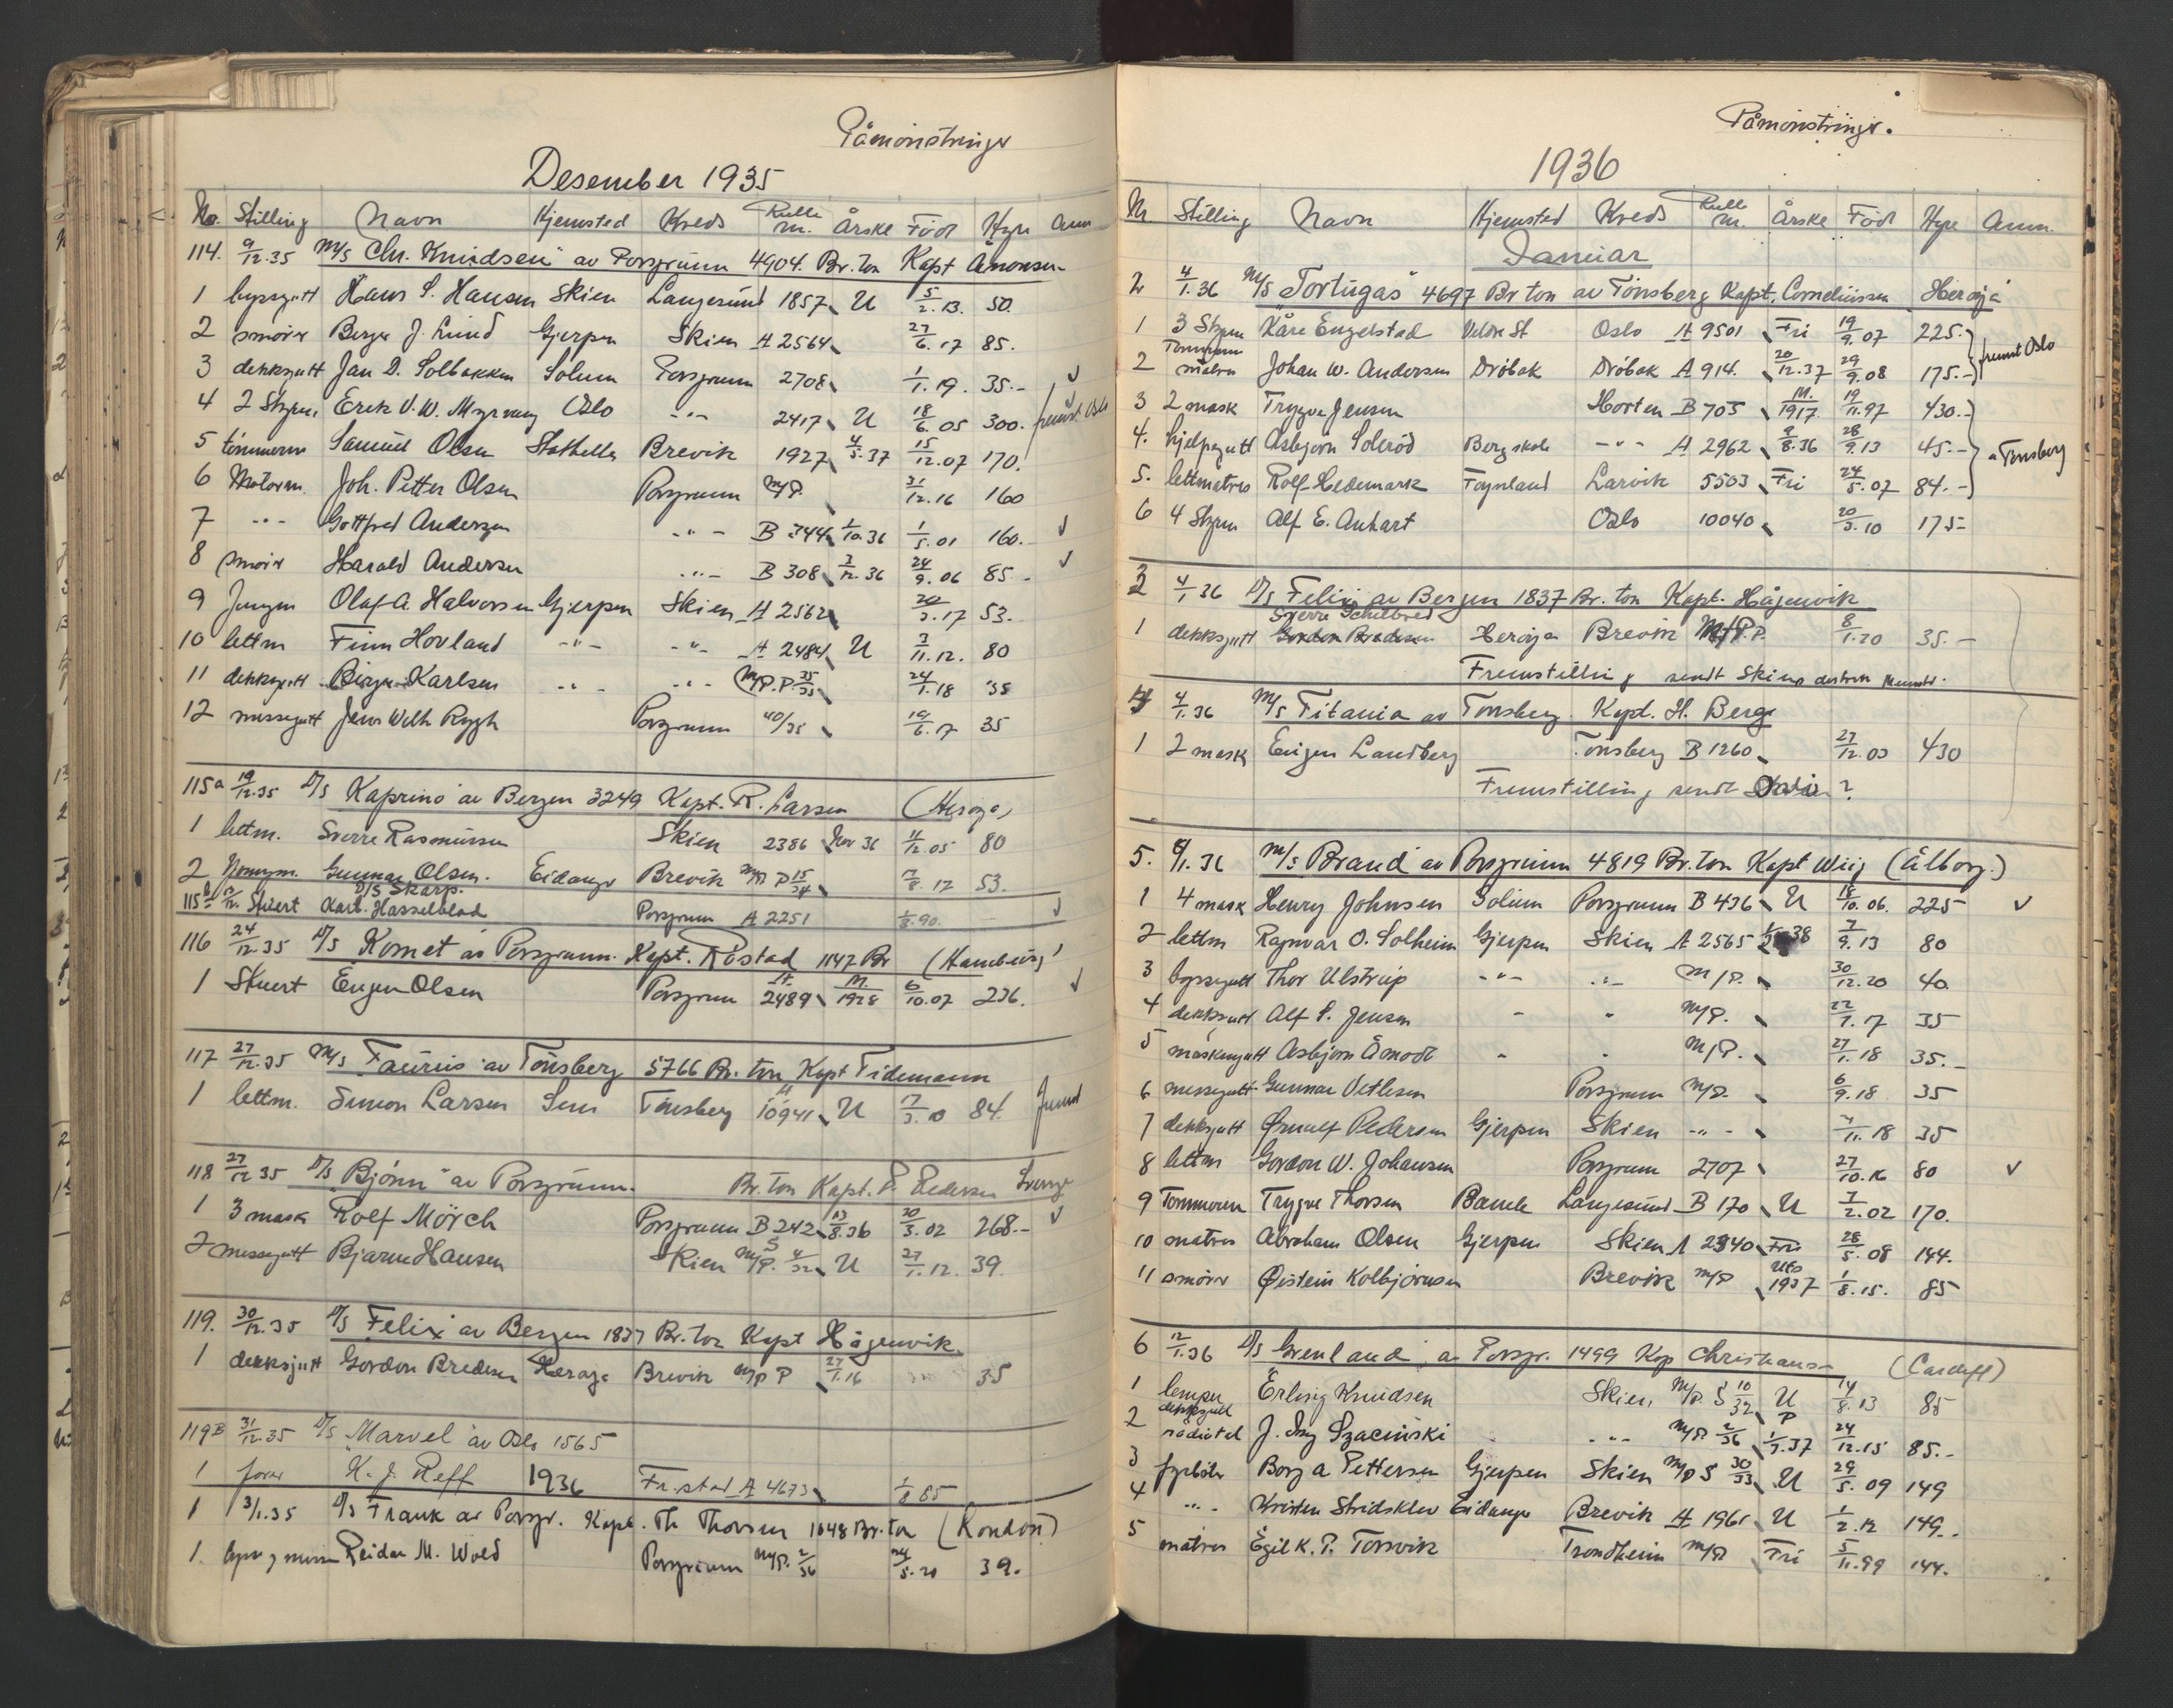 Påmönstringer
Desember 1935
No. Stilling Navn Hjemsted Kreds Rulle nr. Årskl Född Hyre Anm
114. 9/12.35 M/S "Chr. Knudsen" av Porsgrunn 4904 Br. ton Kapt Amonsen
1 byssgutt Hans S. Hansen Skien Langesund 1857 U 5/2.13. 50.
2 smörer Berger J. Lund Gjerpen Skien A 2564 27/6.17 85.
3 dekksgutt Jan D. Solbakken Solum Porsgrunn 2708 1/1.19. 35.-
4 2 Styrm. Erik V. W. Myrvang Oslo -"- 2417 U 18/6.05 300. fremst. Oslo
5 tömmerm Samuel Olsen Stathelle Brevik 1927 4/5.37 15/12.07 170.
6 Motorm. Joh. Petter Olsen Porsgrunn M/P. 31/12.16 160
7 -"- Gottfred Andersen -"- B 344 1/10.36 1/5.01 160.-
8 smörer Harald Andersen -"- B 308 3/12.36 24/9.06 85.-
9 Jungm Olaf A Halvorsen Gjerpen Skien A 2562 20/3.17 53.-
10 lettm Finn Hovland -"- -"- A 2484 U 3/11.12. 80
11 dekksgutt Birger Karlsen -"- -"- M/P. P 35/33 24/1.18 35
12 messegutt Jens Wilh Rygh Porsgrunn 40/35 19/6.17 35
115a 19/12.35 D/S "Kaprino" av Bergen 3249 Kapt. R. Larsen (Heröya)
1 lettm. Sverre Rasmussen Skien 2386 Nov 36 11/12.05 80
2 Gunnar Olsen. Eidanger Brevik M/P P 15/34 17/8.17 53.
D/S Skarp.
115b Stuert Karl. Hasselblad Porsgrunn A 2251 1/8.90.
116 24/12.35 D/S "Komet" av Porsgrunn. Kapt. Röstad 1147 Br (Hamburg)
1 Stuert Eugen Olsen Porsgrunn A 2489 M 1928 6/10.07 236.
117 27/12.35 M/S "Taurus" av Tönsberg 5766 Br. ton Kapt Tidemann
1 lettm. Simon Larsen Sem Tönsberg A 10941 U 17/3.10 84. fremst
118 27/12 35 D/S "Björn" av Porsgrunn. Br. ton Kapt. P. Pedersen Sverige
1 3 mask Rolf Mörch Porsgrunn B 242 13/8.36 20/3.02 268.-
2 messegutt Bjarne Hansen Skien M/P. S 4/32 U 27/1.12. 39.
119. 30/12.35 D/S "Felix" av Bergen 1837 Br. ton Kapt Hågenvik.
1 dekksgutt Gordon Bredesen Heröya Brevik M/P P 27/1.16 35
119B 31/12.35 D/S "Marvel" av Oslo 1565
1 K. J. Reff 1936 Fr.stad A 4673 1/8 85
1 3/1.35 D/S "Frank" av Porsgr. Kapt. Th Thorsen 1048 Br. ton (London)
1. bysse g messe Reidar M. Wold Porsgrunn M/P. 2/36 24/5.20 39.
Påmönstringer.
1936
Nr Stilling Navn Hjemsted Kreds Rulle nr. Årskl Född Hyre Anm.
Januar
2 4/1.36 M/S "Tortugas" 4697 Br ton av Tönsberg Kapt. Corneliussen Heröya
1 3 Styrm Kåre Engelstad Oslo A 9501 Fri 19/9.07 225.-
2 Tömmerm matros Johan W. Andersen Dröbak Dröbak A 914. 20/12.37 29/9.08 175.- fremst Oslo
3 2 mask Trygve Jensen Horten B 705 M. 1917 19/11.97 430.-
4. hjelpegutt Asbjörn Soleröd Bergskole -"- A 2962 9/8.36 28/9.13 45.- " Tönsberg
5. lettmatros Rolf Hedemark Foynland Larvik 5503 Fri 24/5.07 84.-
6 4 Styrm Alf E. Anhart Oslo 10040 20/3.10 175-
3 4/1 36 D/S Felix av Bergen 1837 Br. ton Kapt. Hågenvik
Sverre Schilbred
1 dekksgutt Gordon Bredesen Heröya Brevik M/P.P. 8/1.20 35.-
Fremstilling sendt Skiens distrikt
4 4/1.36 M/S Titania av Tönsberg. Kapt. H. Berg
1 2 mask Eugen Landberg Tönsberg B 1260 27/12.03 430
Fremstilling sendt
5. 8/1.36 M/S "Brand" av Porsgrunn 4819 Br. ton Kapt Wiig (Ålborg.)
1 4 mask Henry Johnsen Solum Porsgrunn B 436 U 18/10.06. 225
2 lettm Ragnvar O. Solheim Gjerpen Skien A 2565 38 7/9.13 80
3 byssegutt Thor Ulstrup -"- -"- M/P. 30/12.20 40.
4 dekksgutt Alf S. Jensen - " M/P. 22/7.17 35
5 maskingutt Asbjörn Åmodt " " M/P. 27/1.18 35.-
6 messegutt Gunnar Vetlesen Porsgrunn M/P. 6/9.18 35
7 dekksgutt Ørnulf Pedersen Gjerpen Skien -"- 4/11.18 35
8 lettm Gordon W. Johansen Porsgrunn 2707 27/10.16 80
9 Tömmerm Trygve Thorsen Bamble Langesund B 170 U 7/2.02 170.
10 matros Abraham Olsen Gjerpen Skien A 2340 Fri 28/5.08 144.
11 smörer Øistein Kolbjörnsen Brevik M/P Uts 1937 1/8.15. 85
6 12/1.36 D/S "Grenland" av Porsgr. 1499 Kap Christiansen (Cardiff)
1 lemper Erling Knudsen Skien. M/P. S 10/32 U 14/8.13 85
2 dekksgutt radiotel J. Szacinski -"- M/P. 2/36 P 1/7.37 24/12.15 85.-
3 fyrböter Borg a Pettersen Gjerpen Skien M/P S 30/33 U 29/5.09 149
4 -"- Kristen Stridsklev Eidanger Brevik A 1961 U 1/2.12 149.-
5 matros Egil K. P. Torsvik Trondheim M/P Fri 5/11.99 144.